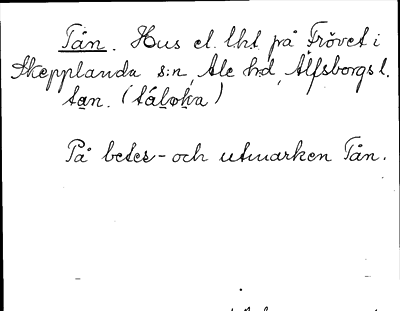 Tån. Hus el. lht på Frövet i
Skepplanda s:n, Ale hd, Älfsborgs l.
På betes- och utmarken Tån.